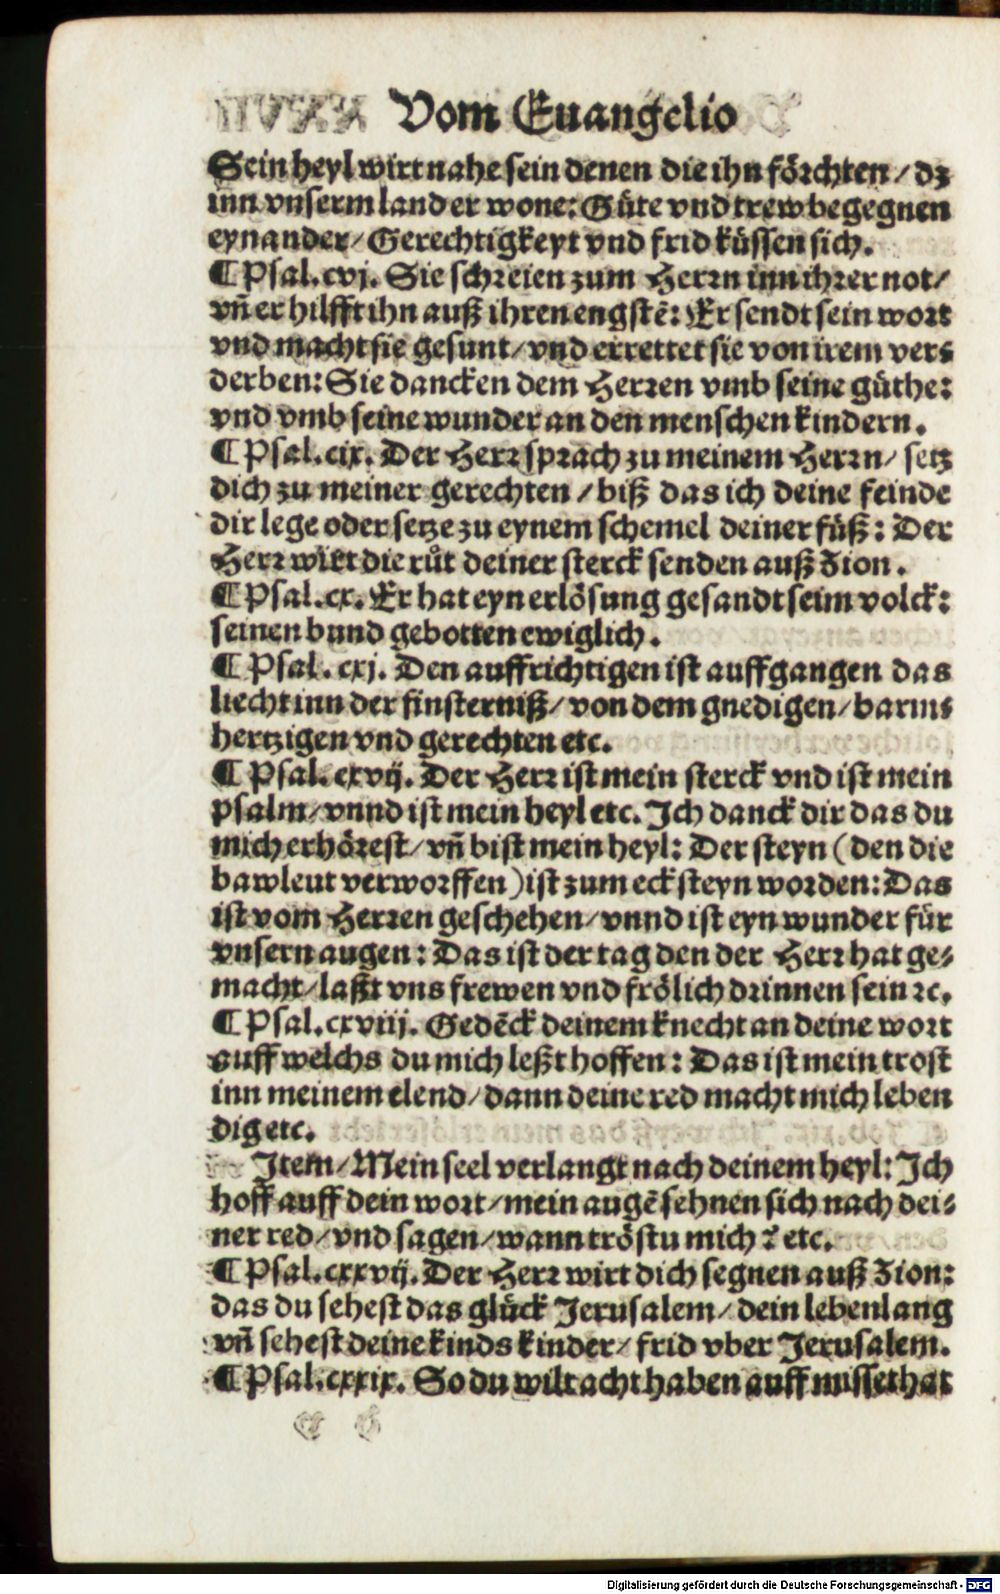 Vom Euangelio
Sein heyl wirt nahe sein denen die ihn förchten / dz
inn vnserm land er wone: Güte vnd trew begegnen
eynander / Gerechtigkeyt vnd frid küssen sich.
¶ Psal. cvj. Sie schreien zum Herrn inn ihrer not /
vñ er hilfft ihn auß ihren engstē: Er sendt sein wort
vnd macht sie gesunt / vnd errettet sie von irem ver⸗
derben: Sie dancken dem Herren vmb seine güthe:
vnd vmb seine wunder an den menschen kindern.
¶ Psal. cix. Der Herr sprach zu meinem Herrn / setz
dich zu meiner gerechten / biß das ich deine feinde
dir lege oder setze zu eynem schemel deiner füß: Der
Herr wirt die růt deiner sterck senden auß Zion.
¶ Psal. cx. Er hat eyn erlösung gesandt seim volck:
seinen bund gebotten ewiglich.
¶ Psal. cxj. Den auffrichtigen ist auffgangen das
liecht inn der finsterniß / von dem gnedigen / barm⸗
hertzigen vnd gerechten etc.
¶ Psal. cxvij. Der Herr ist mein sterck vnd ist mein
psalm / vnnd ist mein heyl etc. Ich danck dir das du
mich erhörest / vñ bist mein heyl: Der steyn (den die
bawleut verworffen) ist zum ecksteyn worden: Das
ist vom Herren geschehen / vnnd ist eyn wunder für
vnsern augen: Das ist der tag den der Herr hat ge⸗
macht / laßt vns frewen vnd frölich drinnen sein ꝛc.
¶ Psal. cxviij. Gedēck deinem knecht an deine wort
auff welchs du mich leßt hoffen: Das ist mein trost
inn meinem elend / dann deine red macht mich leben
dig etc.
Item / Mein seel verlangt nach deinem heyl: Ich
hoff auff dein wort / mein augē sehnen sich nach dei⸗
ner red / vnd sagen / wann tröstu mich? etc.
¶ Psal. cxxvij. Der Herr wirt dich segnen auß Zion:
das du sehest das glück Jerusalem / dein lebenlang
vñ sehest deine kinds kinder / frid vber Jerusalem.
¶ Psal. cxxix. So du wilt acht haben auff missethat
Digitalisierung gefördert durch die Deutsche Forschungsgemeinschaft - DFG